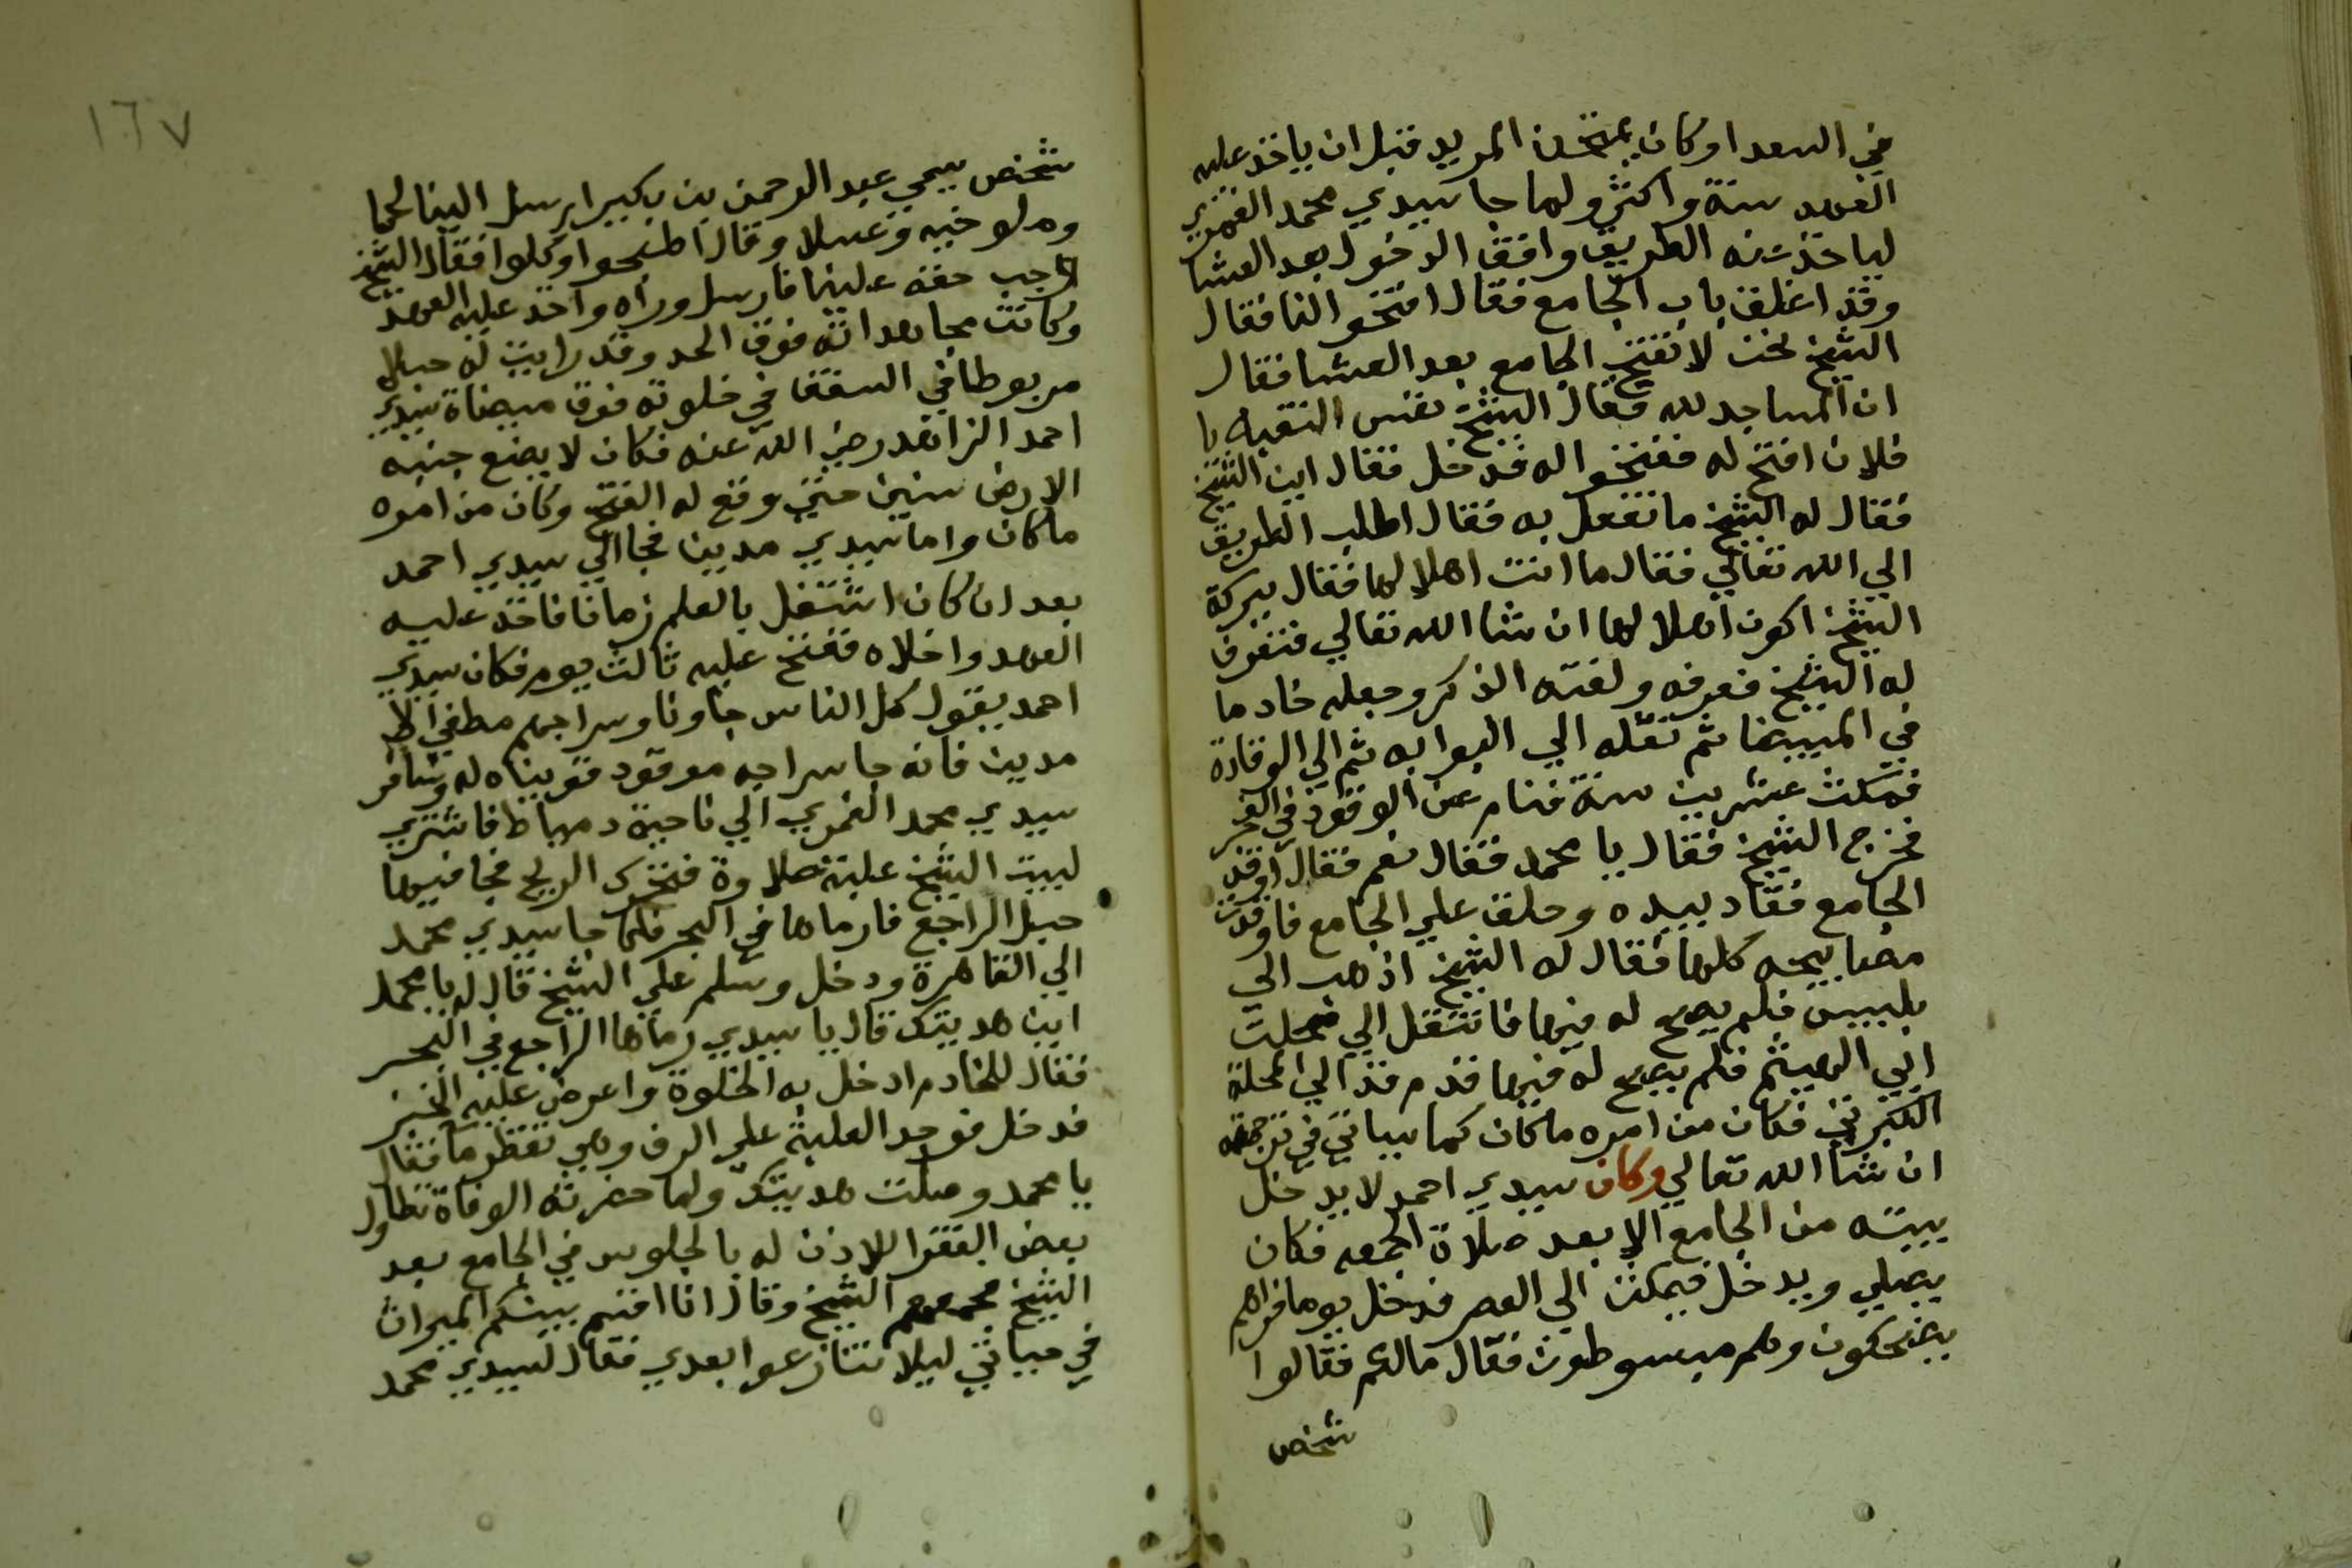 في السعدا وكان يمتحن المريد قبل ان ياخذ عليه
العهد سنة واكثر ولما جا سيدي محمد الغمري
لياخذ عنه الطريق وافق الدخول بعد العشا
وقد اغلق باب الجامع فقال افتحوا لنا فقال
الشيخ نحن لا نفتح الجامع بعد العشا فقال
ان المساجد لله فقال الشيخ نفس الفقيه يا
فلان افتح له ففتحوا له فدخل فقال اين الشيخ
فقال له الشيخ ما تفعل به فقال اطلب الطريق
الي الله تعالي فقال ما انت اهلا لها فقال ببركة
الشيخ اكون اهلا لها ان شا الله تعالي فتعرف
له الشيخ فعرفه ولقنه الذكر وجعله خادما
في الميضا ثم نقله الي البوابه ثم الي الوقادة
فمكث عشرين سنة فنام عن الوقود في الفجر
فخرج الشيخ فقال يا محمد فقال نعم فقال اوقد
الجامع فقاد بيده وحلق علي الجامع فاوقدت
مصابيحه كلها فقال له الشيخ اذهب الي
بلبيس فلم يصح له فيها فانتقل الي محلت
ابي الهيثم فلم يصح له فيها قدم فقد الي المحلة
الكبرتي فكان من امره ما كان كما سياتي في ترجمته
ان شا الله تعالي وكان سيدي احمد لا يدخل
بيته من الجامع الا بعد صلاة الجمعه فكان
يصلي ويدخل فيمكث الي العصر فدخل يوما فراهم
يضحكون وهم مبسوطون فقال مالكم فقالوا
شخص
١٦٧
شخص يسمي عبد الرحمن بن بكير ارسل الينا لحما
وملوخيه وعسلا وقال اطبخوا وكلوا فقال الشيخ
وجب حقه علينا فارسل وراه واخذ عليه العهد
وكانت مجاهداته فوق الحد وقد رايت له حبلا
مربوطا في السقف في خلوته فوق ميضاة سيدي
احمد الزاهد رضي الله عنه فكان لا يضع جنبه
الارض سنين حتي وقع له الفتح وكان من امره
ما كان واما سيدي مدين فجا الي سيدي احمد
بعد ان كان اشتغل بالعلم زمانا فاخذ عليه
العهد واخلاه ففتح عليه ثالث يوم فكان سيدي
احمد يقول كل الناس جاونا وسراجهم مطفي الا
مدين فانه جا سراجه موقود فقويناه له وسافر
سيدي محمد الغمري الي ناحية دمياط فاشتري
لبيت الشيخ علبة حلاوة فتحرك الريح فجا فيها
حبل الراجع فارماها في البحر فلما جا سيدي محمد
الي القاهرة ودخل وسلم علي الشيخ قال له يا محمد
اين هديتك قال يا سيدي رماها الراجع في البحر
فقال للخادم ادخل به الخلوة واعرض عليه الخبز
فدخل فوجد العلبة علي الرف وهي تقطر ما فقال
يا محمد وصلت هديتك ولما حضرته الوفاة تطاول
بعض الفقرا للاذن له بالجلوس في الجامع بعد
الشيخ الشيخ وقال انا اقسم بينكم الميراث
في حياتي ليلا تتنازعوا بعدي فقال لسيدي محمد